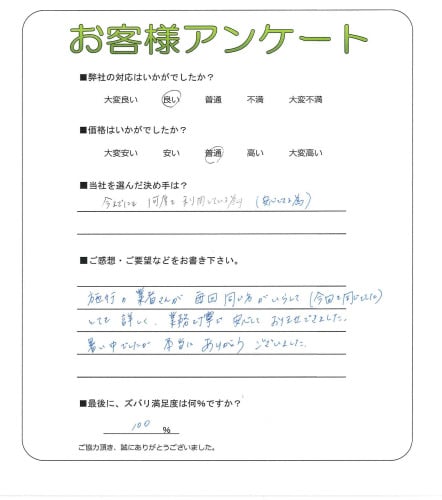 お客様アンケート
■弊社の対応はいかがでしたか？
大変良い 良い 普通 不満 大変不満
■価格はいかがでしたか？
大変安い 安い 普通 高い 大変高い
■当社を選んだ決め手は？
今までにも 何度も 利用している為 (安心している為)
■ご感想・ご要望などをお書き下さい。
施行の業者さんが 毎回 同じ方がいらして (今回も同じでした)
とても 詳しく、業務も丁寧で 安心して おまかせできました。
暑い中でしたが 本当に ありがとう ございました。
■最後に、ズバリ満足度は何％ですか？
100 ％
ご協力頂き、誠にありがとうございました。